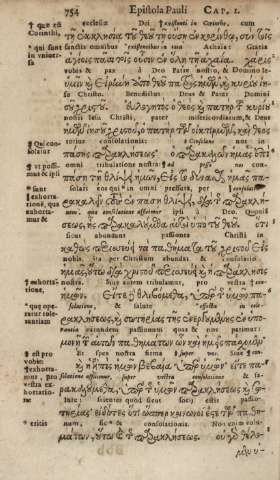 754 Epistola Pauli CAP. I.
ecclesiæ Dei existenti in Corintho, cum
τῇ ἐκκλησίᾳ τοῦ Θεοῦ τῇ οὔσῃ ἐν Κορίνθῳ, σὺν τοῖς
sanctis omnibus existentibus in tota Achaia: Gratia
ἁγίοις πᾶσι τοῖς οὖσιν ἐν ὅλῃ τῇ Ἀχαΐᾳ. χάρις
vobis & pax à Deo Patre nostro, & Domino Ie-
ὑμῖν καὶ εἰρήνη ἀπὸ Θεοῦ πατρὸς ἡμῶν, καὶ κυρίου Ἰη-
su Christo. Benedictus Deus & Pater Domini
σοῦ χριστοῦ. εὐλογητὸς ὁ Θεὸς καὶ πατὴρ τοῦ κυρίου
nostri Iesu Christi, pater misericordiarum, & Deus
ἡμῶν Ἰησοῦ χριστοῦ, ὁ πατὴρ τῶν οἰκτιρμῶν, καὶ Θεὸς
totius consolationis:
πάσης παρακλήσεως
omni tribulatione nostra
πάσῃ τῇ θλίψει ἡμῶν, εἰς τὸ δύνασθαι ἡμᾶς πα-
solari eos qui in omni pressura, per
ρακαλεῖν τοὺς ἐν πάσῃ θλίψει, διὰ τῆς παρακλή-
à Deo. Quoniam
σεως, ἧς παρακαλούμεθα αὐτοὶ ὑπὸ τοῦ Θεοῦ. ὅτι
sicut abundant passiones Christi in
καθὼς περισσεύει τὰ παθήματα τοῦ χριστοῦ εἰς
nobis, ita per Christum abundat & consolatio
ἡμᾶς, οὕτω διὰ χριστοῦ περισσεύει καὶ ἡ παράκλησις
nostra. Sive autem tribulamur, pro vestra
ἡμῶν. Εἴτε δὲ θλιβόμεθα, ὑπὲρ τῆς ὑμῶν πα-
ρακλήσεως, καὶ σωτηρίας τῆς ἐνεργουμένης ἐν ὑπο-
earundem passionum quas & nos patimur:
μονῇ τῶν αὐτῶν παθημάτων ὧν καὶ ἡμεῖς πάσχομεν
Et spes nostra firma super vos. Sive
καὶ ἡ ἐλπὶς ἡμῶν βεβαία ὑπὲρ ὑμῶν. εἴτε πα-
ρακαλούμεθα, ὑπὲρ τῆς ὑμῶν παρακλήσεως, καὶ σω-
lute: scientes quod sicut socii estis passio-
τηρίας· εἰδότες ὅτι ὥσπερ κοινωνοί ἐστε τῶν παθη-
num, sic & consolationis. Non enim volu-
μάτων, οὕτω καὶ τῆς παρακλήσεως. οὐ γὰρ θέλο-
μεν ὑ-
† quæ est
Corinthi,
† qui sunt
in univer-
sa
¶ Qui con-
solatur
† ut possi-
mus & ipsi
† sunt
† exhorta-
tione, qua
exhorta-
mur &
† exhorta-
tione,
† quæ ope-
ratur tole-
rantiam
† est pro
vobis:
¶ exhorta-
mur, pro
vestra ex-
hortatio-
† eritis